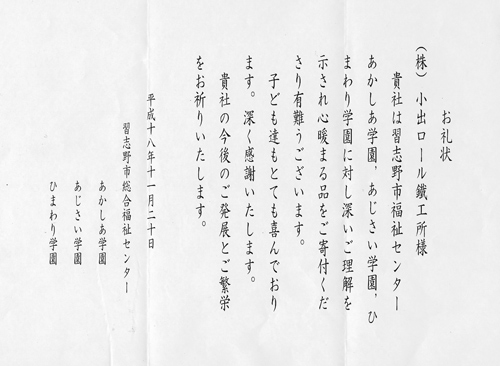 お礼状
（株）小出ロール鐵工所様
貴社は習志野市福祉センター
あかしあ学園，あじさい学園，ひ
まわり学園に対し深いご理解を
示され心暖まる品をご寄付くだ
さり有難うございます。
子ども達もとても喜んでおり
ます。深く感謝いたします。
貴社の今後のご発展とご繁栄
をお祈りいたします。
平成十八年十一月二十日
習志野市総合福祉センター
あかしあ学園
あじさい学園
ひまわり学園